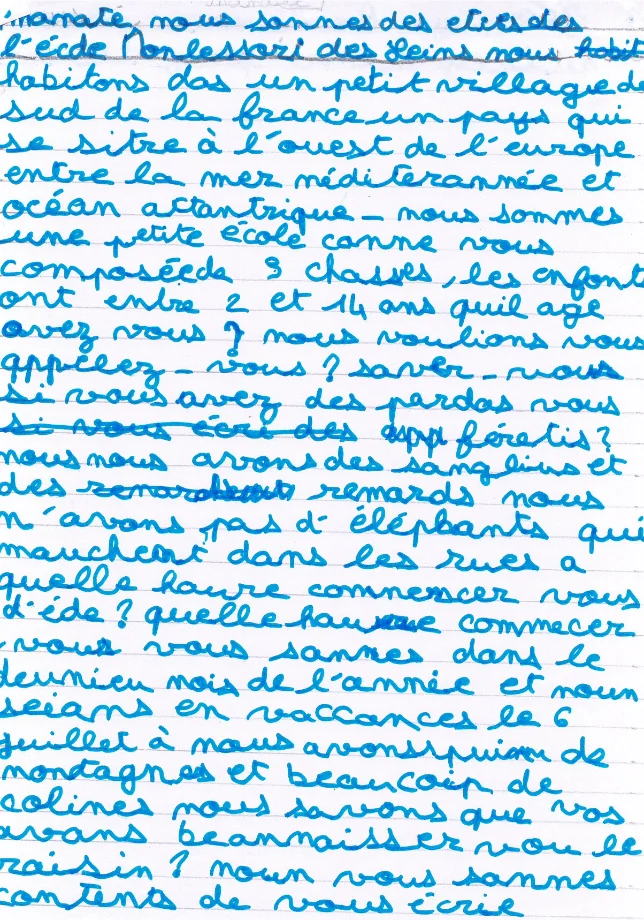 namaté, nous sonnes des eleves des
l'école Montessori des Leins nous habit
habitons das un petit village de
sud de la france un pays qui
se sitre à l'ouest de l'europe
entre la mer méditerannée et
océan attantrique - nous sommes
une petite école canne vous
composéede 3 chasses, les enfont
ont entre 2 et 14 ans quil age
avez vous ? nous voulions vous
appelez - vous ? saver - vous
si vous avez des pardas vous
si vous écri des app féretis?
nous nous avons des sanglius et
des remards nous
n'avons pas d'éléphants qui
mauchent dans les rues a
quelle haure commescer vous
d'éde ? quelle haure commecer
vous vous sannes dans le
deunieu mois de l'année et noun
seians en vaccances le 6
juillet à nous avons de
mondagnes et beaucoip de
colines nous savons que vos
avans beannaisser vou le
raisin ? noun vous sannes
contents de vous écrie